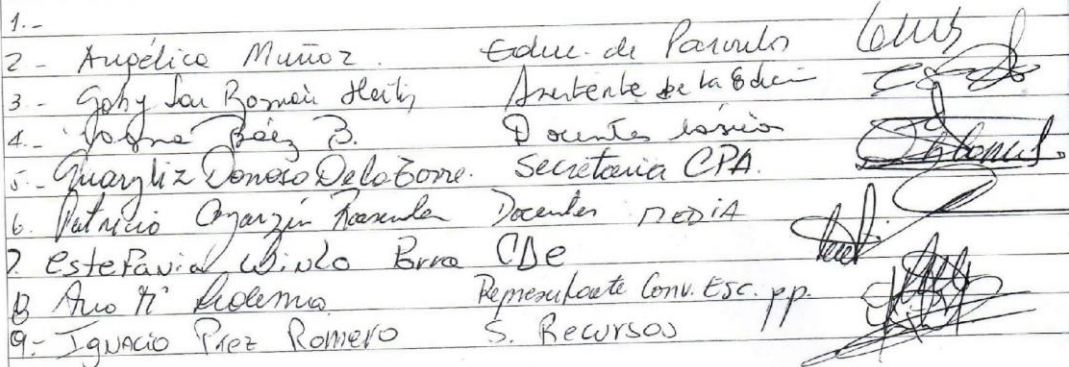 1.-
2- Angélica Muñoz. Educ. de Parvulos
3.- Gaby San Román Asistente de la Educ
4.- Báez B. Docentes básica
5.- Maryliz Donoso De la Torre. Secretaria CPA.
6. Patricio Oyarzún Docentes MEDIA
7. Estefania CDe
8 Ana Mª Representante Conv. Esc. pp.
9.- IGNACIO Pérez Romero S. Recursos